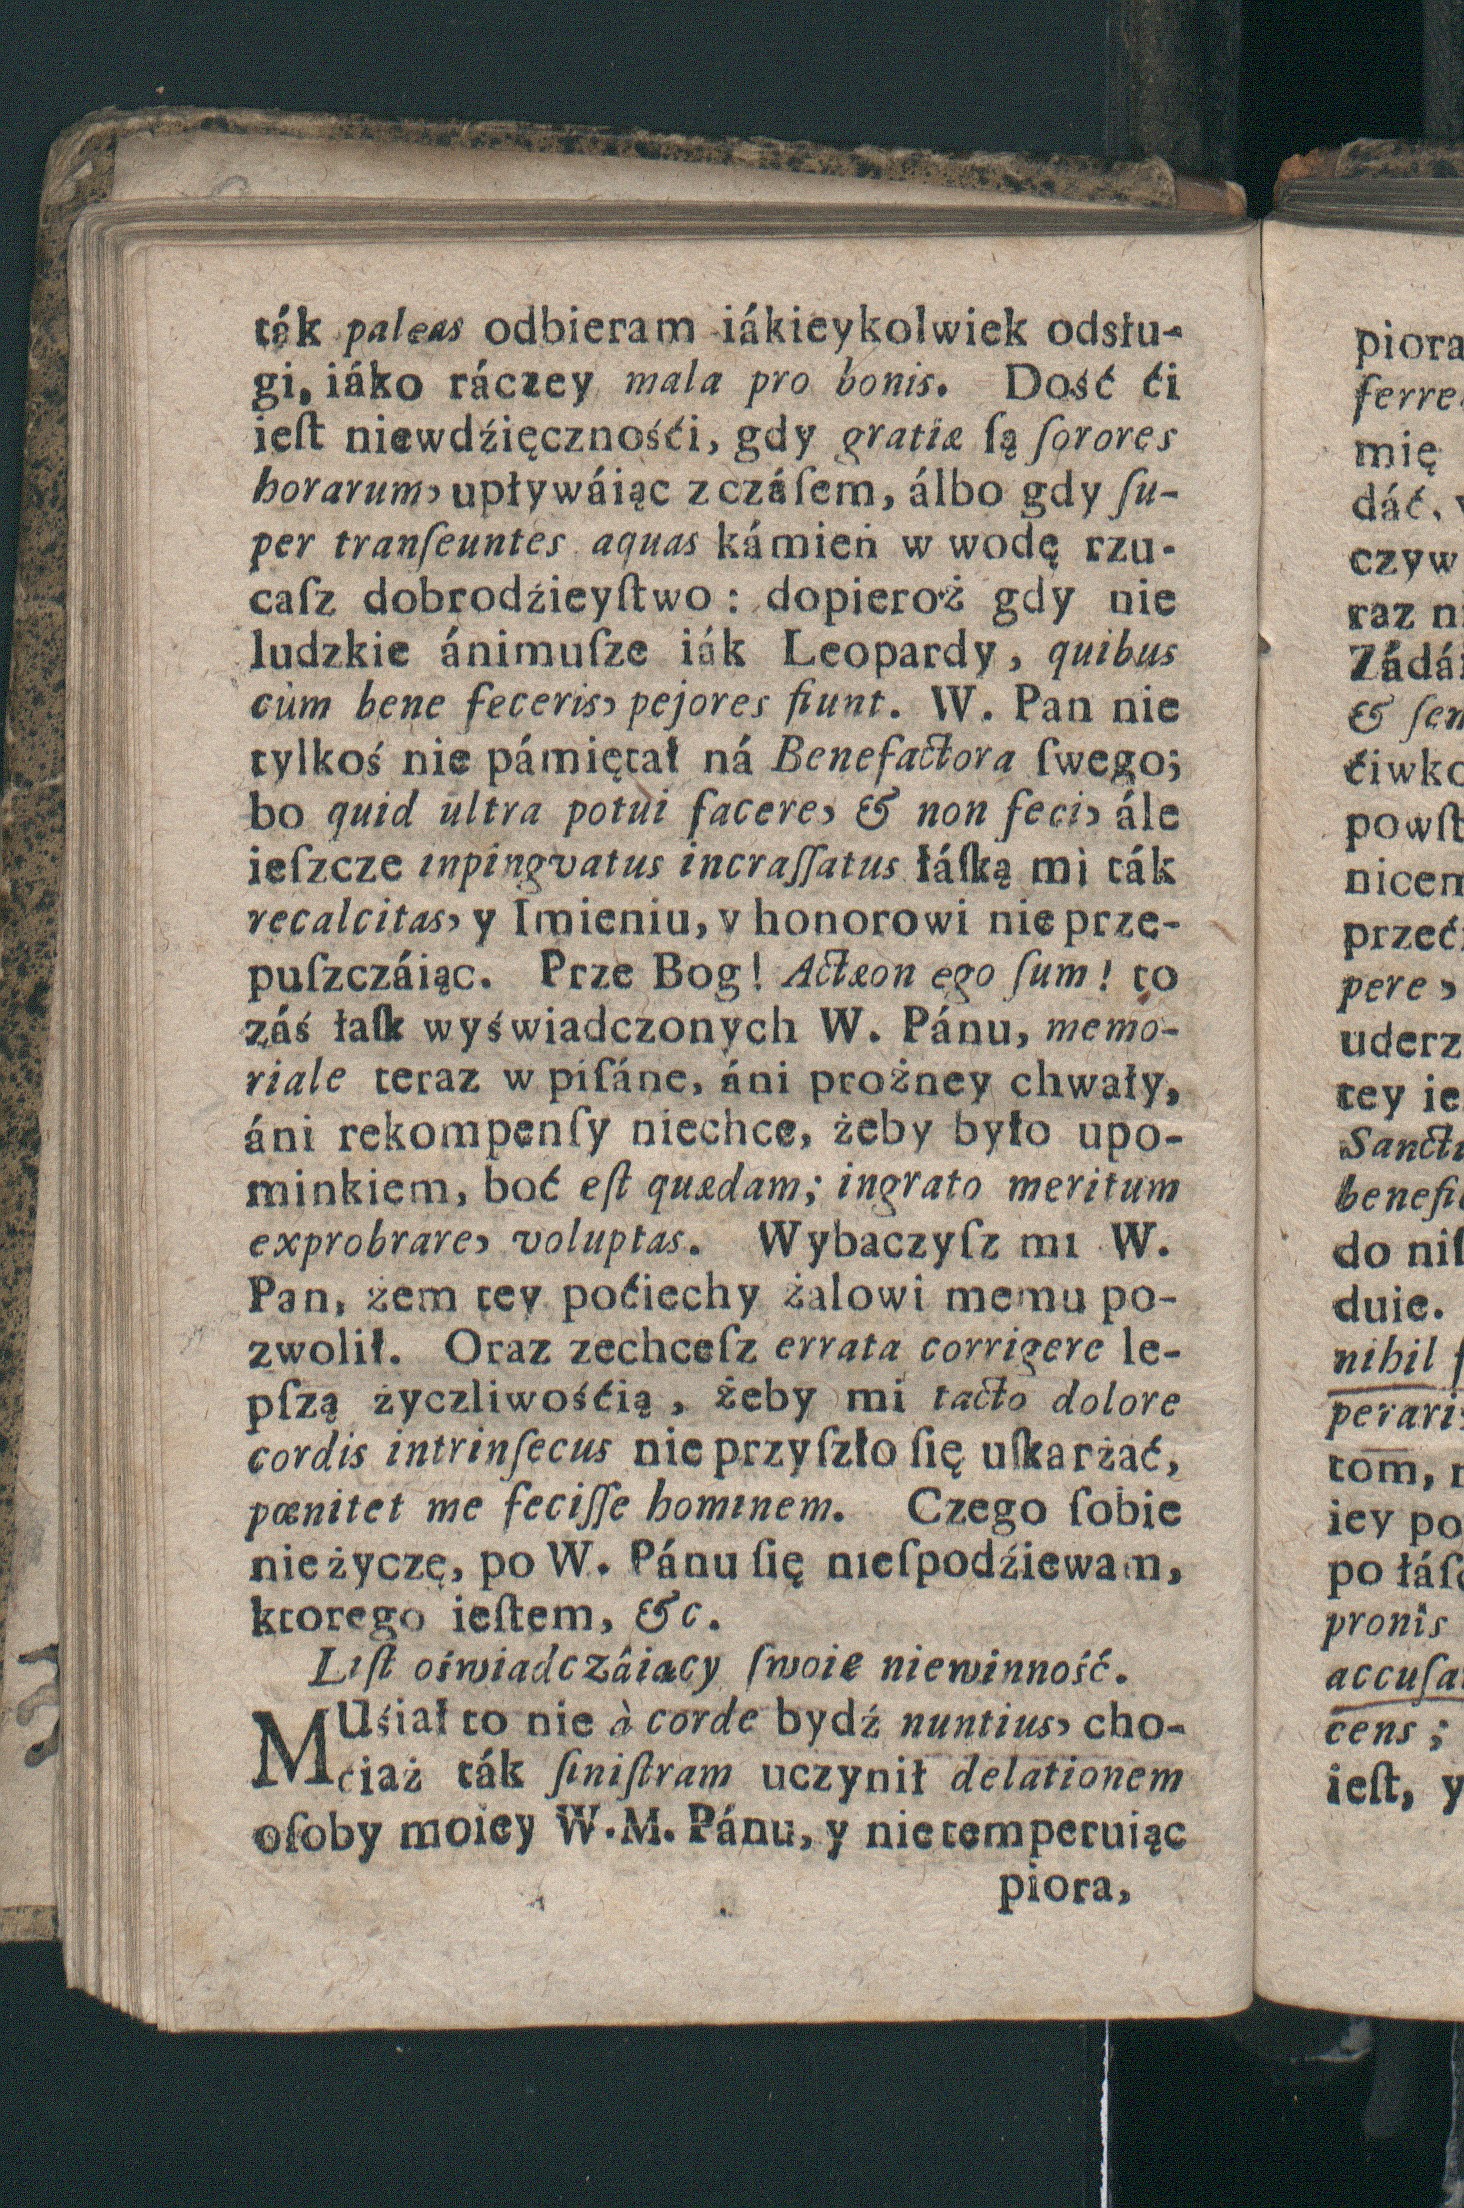 ták paleas odbieram iákieykolwiek odsłu-
gi, iáko ráczey mala pro bonis. Dość ći
ieſt niewdźięcznośći, gdy gratiæ ſą ſorores
horarum, upływáiąc z czáſem, álbo gdy ſu-
per tranſeuntes aquas kámień w wodę rzu-
caſz dobrodźieyſtwo : dopieroż gdy nie
ludzkie ánimuſze iák Leopardy, quibus
cùm bene feceris, pejores fiunt. W. Pan nie
tylkoś nie pámiętał ná Benefactora ſwego;
bo quid ultra potui facere, & non feci, ále
ieſzcze inpingvatus incraſſatus łáſką mi ták
recalcitas, y Imieniu, y honorowi nie prze-
puſzczáiąc. Prze Bog! Actæon ego ſum! to
záś łaſk wyświadczonych W. Pánu, memo-
riale teraz w piſáne, áni prożney chwały,
áni rekompenſy niechce, żeby było upo-
minkiem, boć eſt quædam; ingrato meritum
exprobrare, voluptas. Wybaczyſz mi W.
Pan, żem tey poćiechy żalowi memu po-
zwolił. Oraz zechceſz errata corrigere le-
pſzą życzliwośćią, żeby mi tacto dolore
cordis intrinſecus nie przyſzło ſię uſkarżać,
pœnitet me feciſſe hominem. Czego ſobie
nie życzę, po W. Pánu ſię nieſpodźiewam,
ktorego ieſtem, &c.
Liſt oświadczáiący ſwoie niewinność.
MUśiał to nie à corde bydź nuntius, cho-
ćiaż ták ſiniſtram uczynił delationem
oſoby moiey W.M. Pánu, y nie temperuiąc
piora,
piora
ferre
mię
dáć,
czyw
raz
Zádá
& ſen
ćiwko
powſt
nicem
przeć
pere,
uderz
tey ie
Sanctu
benefi
do niſ
duie.
nihil
perari
tom,
iey po
po łáſ
pronis
accuſa
cens ;
ieſt, y